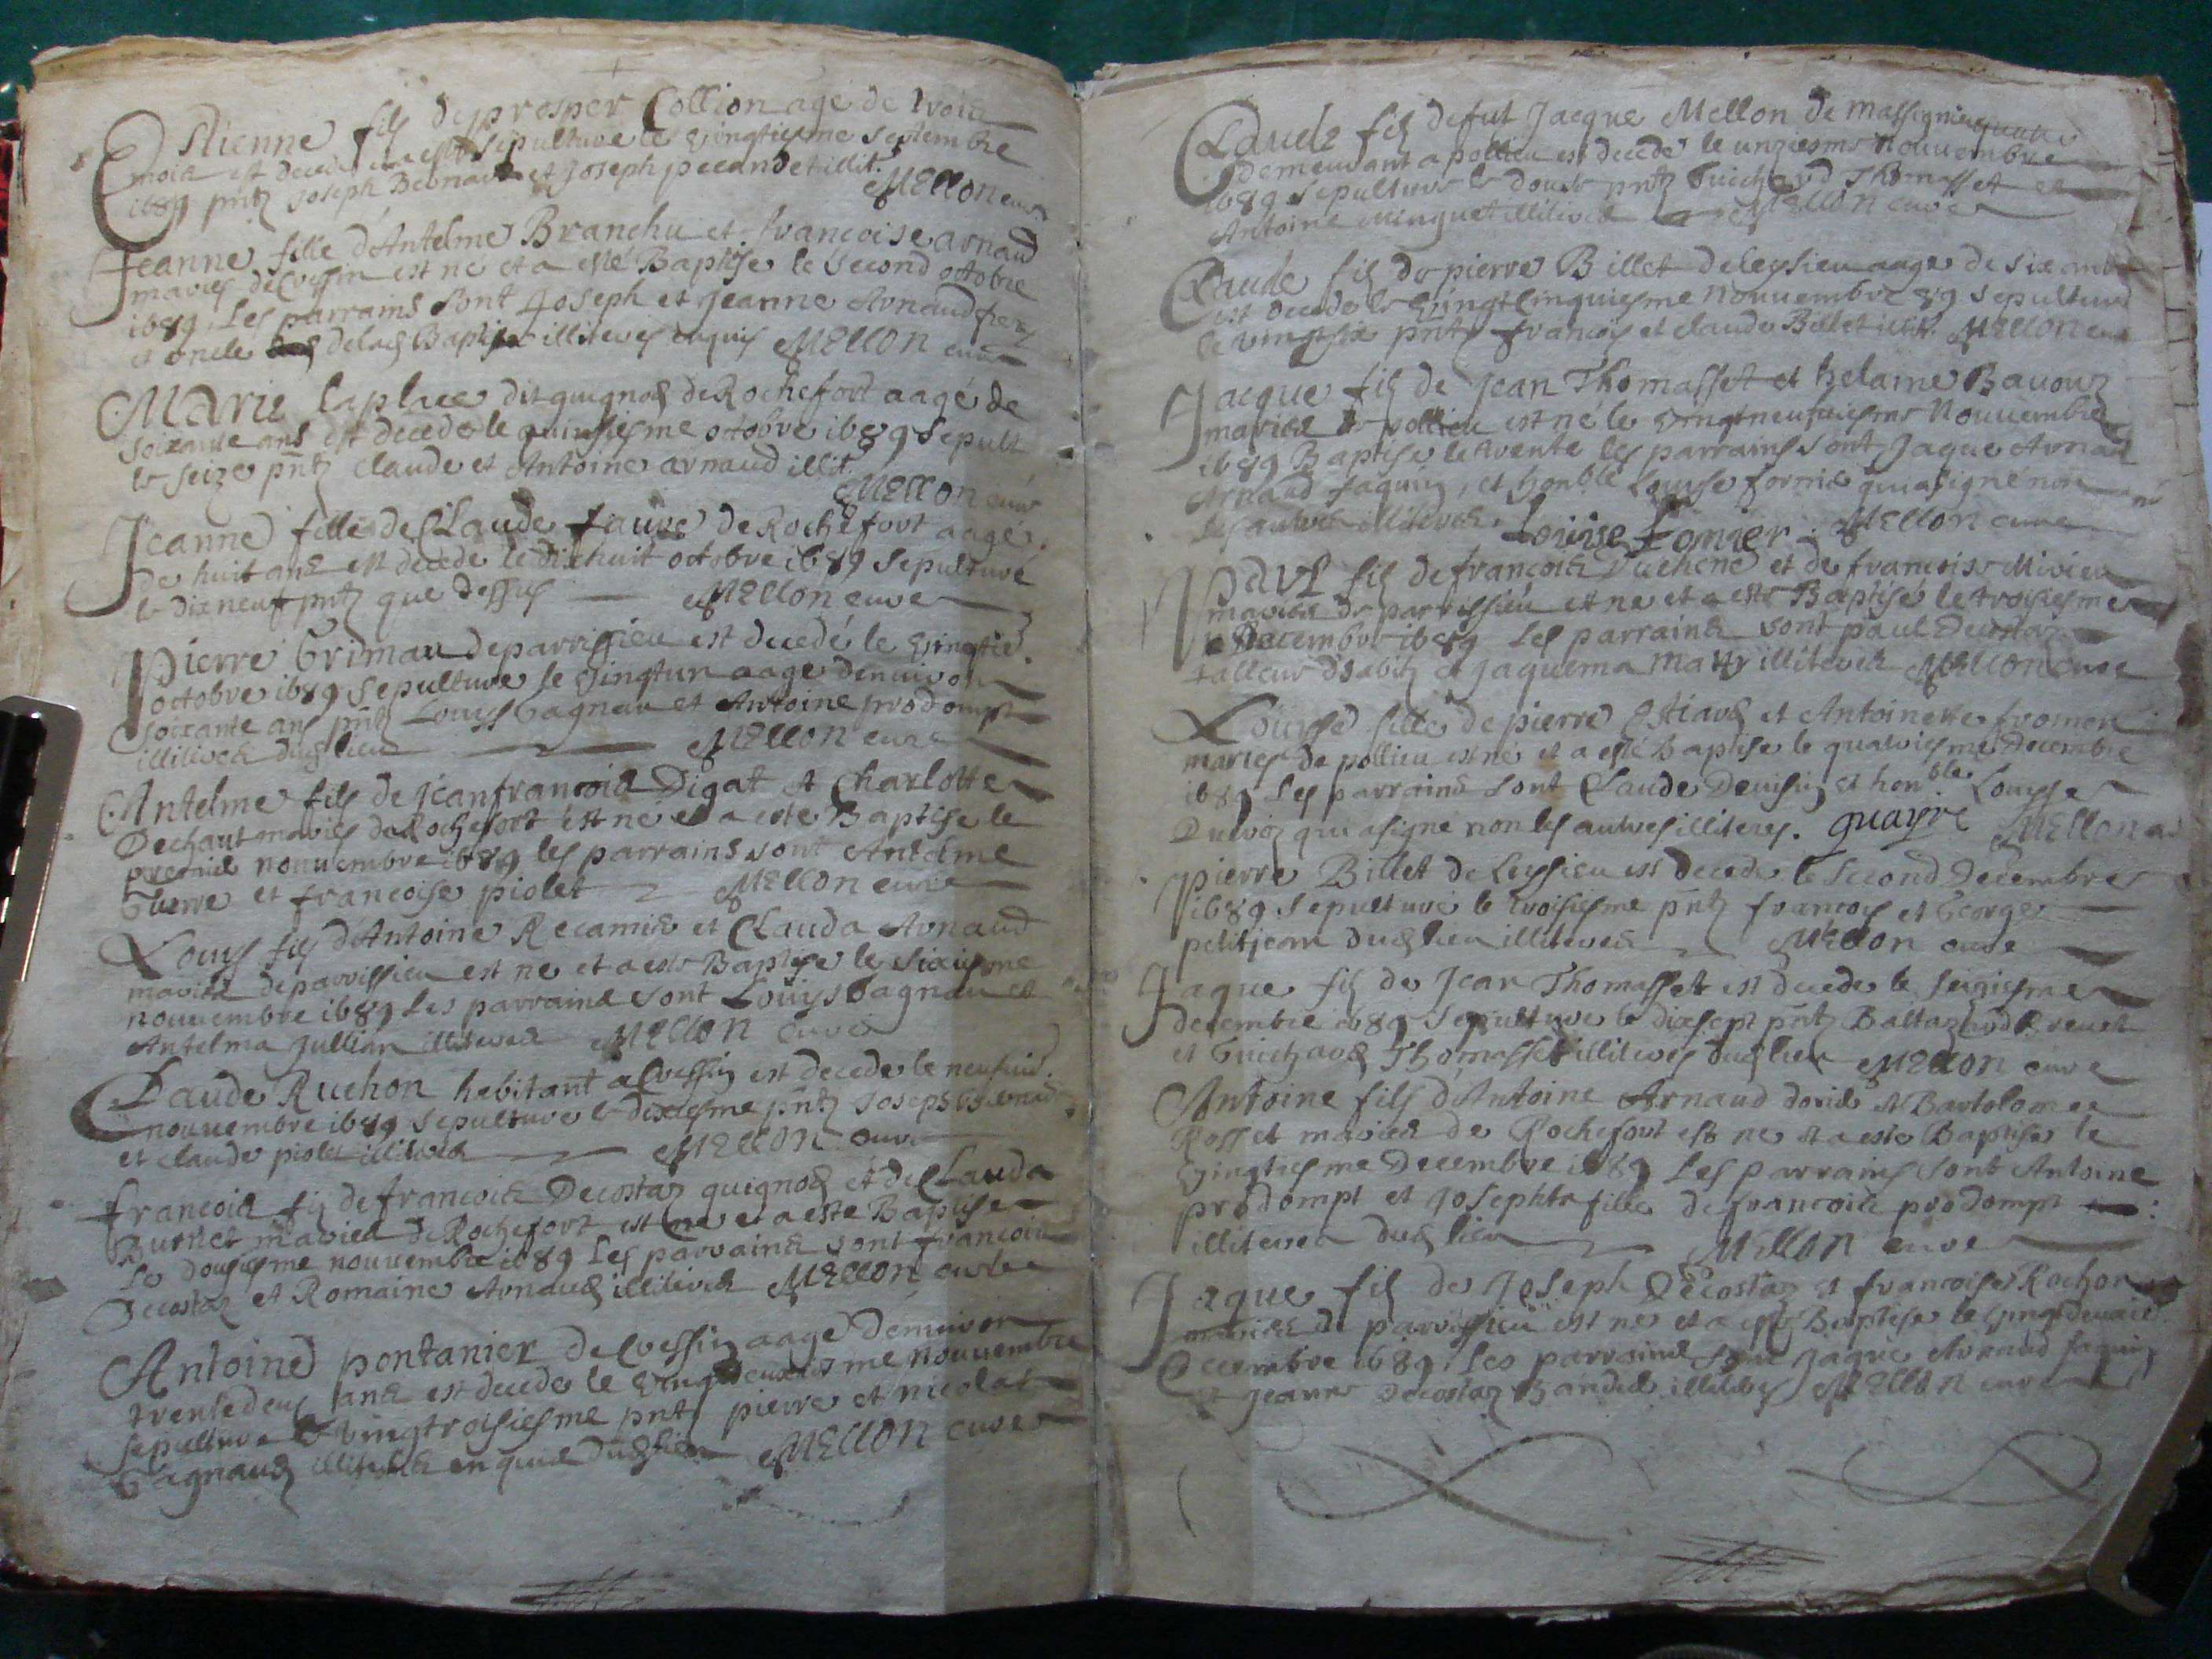 Estienne fils de prosper Collion age de trois
mois est decede et a esté sepulture le vingtiesme septembre
1689 pntz Joseph Bernard et Joseph pecandet illit.
Mellon cure
Jeanne fille d'Antelme Branchu et francoise arnaud
maries de Cressin est né et a esté Baptise le second octobre
1689. Les parrains sont Joseph et Jeanne Arnaud
et oncle delad Baptise illiteres enquis Mellon cure
Marie laplace dit guignod de Rochefort aagé de
soixante ans est decede le quinsiesme octobre 1689 sepult
le seize pntz claude et Antoine arnaud illit.
Mellon cure
Jeanne fille de Claude faure de Rochefort aagé
de huit ans est decede le dixhuit octobre 1689 sepulture
le dixneuf pntz que dessus Mellon cure
Pierre Griman de parrissieu est decedé le vingtie.
octobre 1689 sepulture le vingtun aage denuiron
soixante ans pntz Louys Gagnau et Antoine prodompt
illiteres dud lieu Mellon cure
Antelme fils de jeanfrancois Digat et Charlotte
Dechaut maries de Rochefort est né et a esté Baptise le
premie nouuembre 1689 les parrains sont Antelme
Guerre et francoise piolet Mellon cure
Louys fils d'Antoine Recamie et Clauda Arnaud
maries de parrissieu est ne et a este Baptise le sixiesme
nouuembre 1689 Les parrains sont Louys Gagnau et
Antelma Jullian illiteres Mellon cure
Claude Ruchon habitant a Cressin est decede le neufuie.
nouuembre 1689 sepulture le dixiesme pntz Joseph Bernard
et claude piolet illiteres Mellon cure
francois fils de francois Decostaz guignod et de Clauda
Burnet maries de Rochefort est ne et a este Baptise
Le dousiesme nouuembre 1689 Les parrains sont francois
Decostaz et Romaine Arnaud illiteres Mellon cure
Antoine pontanier de Cressin aage denuiron
trentedeux ans est decede le vingtdeuxiesme nouuembre
sepulture le vingtroisiesme pntz pierre et nicolas
Gagnaud illiteres enquis dud lieu Mellon cure
Claude fils de fut Jacque Mellon de massignieu
demeurant a pollieu est decede le unziesme nouuembre
1689 sepulture le douse pntz Guichard Thomasset et
Antoine Minguet illiteres Mellon cure
Claude fils de pierre Billet de leysieu aage de six ans
est decede le vingtcinquiesme nouuembre 89 sepulture
le vingtsix pntz francois et claude Billet illit. Mellon cure
Jacque fils de Jean Thomasset et helaine Bauouz
maries de pollieu est né le vingtneufuiesme nouuembre
1689 Baptise le trente les parrains sont Jaque Arnau
Arnaud faquin, et honble Louyse formie qui a signé non
les autres illiteres. Louise Fornier Mellon cure
Paul fils de francois Duchene et de francoise Miuieu
maries de parrissieu est ne et a este Baptisé le troisiesme
Decembre 1689 Les parrains sont paul Decostaz
talleur dhabitz et Jaquema Matty illiteres Mellon cure
Louyse fille de pierre Estiard et Antoinette froment
maries de pollieu est né et a esté Baptise le quatriesme Decembre
1689 Les parrains sont Claude Deuisin et honble Louyse
qui a signe non les autres illiteres. Mellon
Pierre Billet de Leysieu est decede le second Decembre
1689 sepulture le troisiesme pntz francois et George
petitjean dud lieu illiteres Mellon cure
Jaque fils de Jean Thomasset est decede le seiziesme
decembre 1689 sepulture le dixsept pntz Baltazard
et Guichard Thomasset illiteres dud lieu Mellon cure
Antoine fils d'Antoine Arnaud et Bartolomee
Rosset maries de Rochefort est ne et a este Baptise le
vingtiesme Decembre 1689 Les parrains sont Antoine
prodompt et Josephte fille de francois prodompt
illiteres dud lieu Mellon cure
Jaque fils de Joseph Decostaz et francoise Rochon
maries de parrissieu est ne et a este Baptise le
Decembre 1689. Les parrains sont Jaque Arnaud faquin
et Jeanne Decostaz illiteres Mellon cure